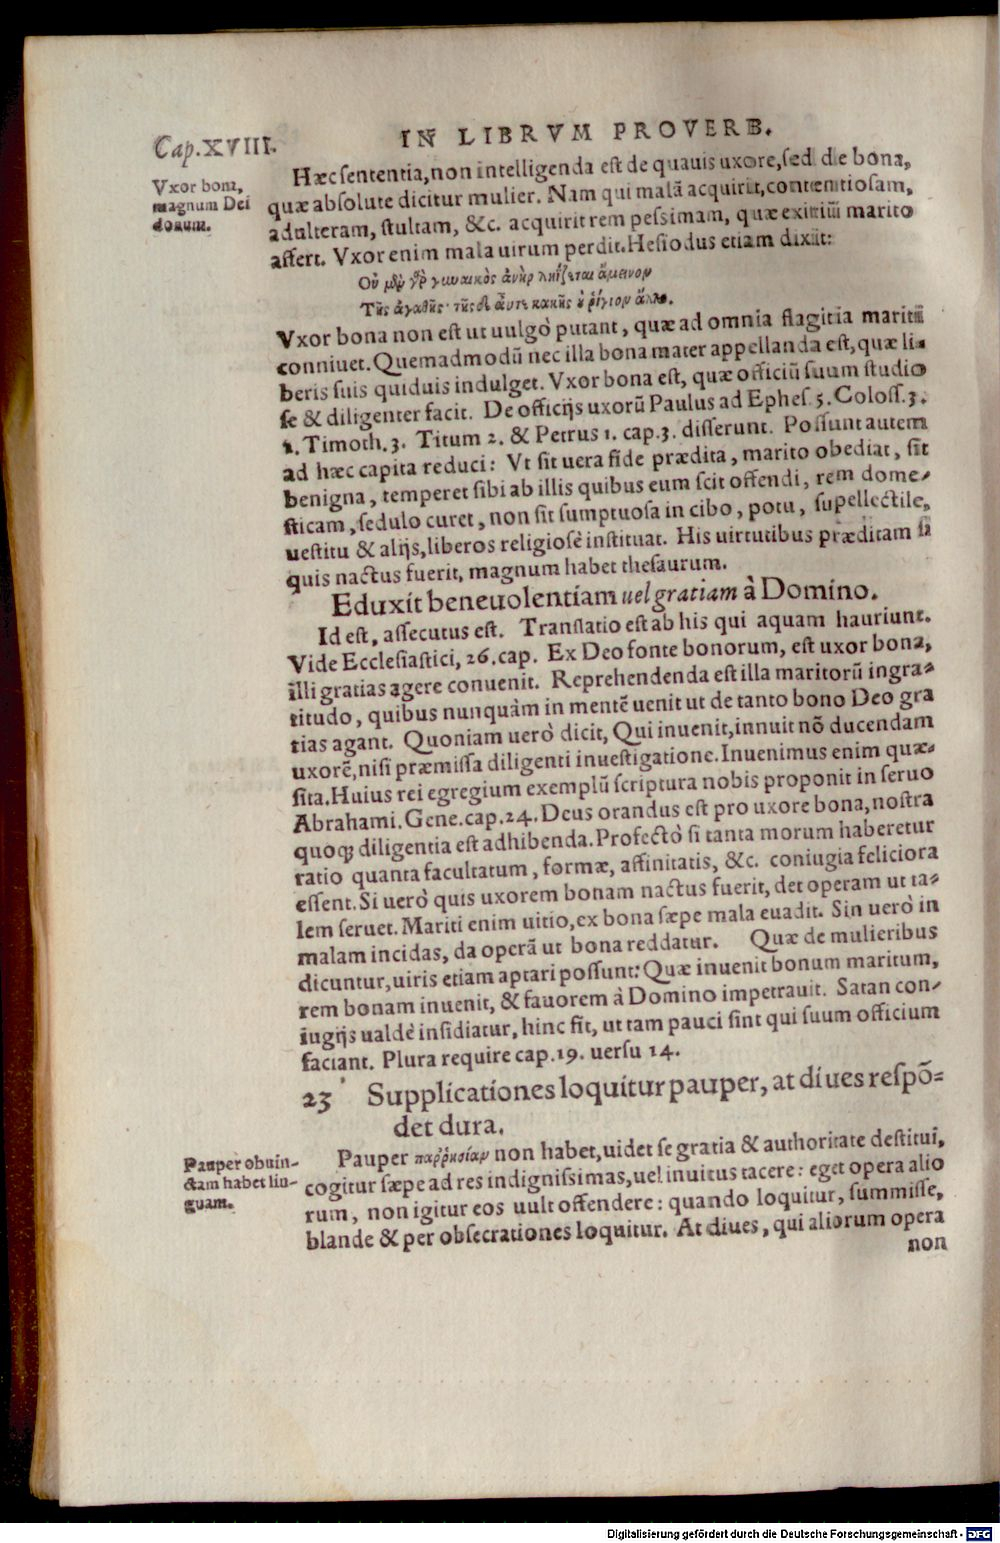 Cap. XVIII.
IN LIBRVM PROVERB.
Vxor bona,
magnum Dei
donum.
Hæc sententia, non intelligenda est de quauis uxore, sed de bona,
quæ absolute dicitur mulier. Nam qui malā acquirit, contentiosam,
adulteram, stultam, &c. acquirit rem pessimam, quæ exitiū marito
affert. Vxor enim mala uirum perdit. Hesiodus etiam dixit:
Οὐ μὲν γὰρ γυναικὸς ἀνὴρ ληΐζεται ἄμεινον
Τῆς ἀγαθῆς· τῆς δ' αὖτε κακῆς οὐ ῥίγιον ἄλλο.
Vxor bona non est ut uulgò putant, quæ ad omnia flagitia mariti
conniuet. Quemadmodū nec illa bona mater appellanda est, quæ li-
beris suis quiduis indulget. Vxor bona est, quæ officiū suum studio
se & diligenter facit. De officijs uxorū Paulus ad Ephes. 5. Coloss. 3.
1. Timoth. 3. Titum 2. & Petrus 1. cap. 3. disserunt. Possunt autem
ad hæc capita reduci: Vt sit uera fide prædita, marito obediat, sit
benigna, temperet sibi ab illis quibus eum scit offendi, rem dome-
sticam, sedulo curet, non sit sumptuosa in cibo, potu, supellectile,
uestitu & alijs, liberos religiosè instituat. His uirtutibus præditam si
quis nactus fuerit, magnum habet thesaurum.
Eduxit beneuolentiam uel gratiam à Domino.
Id est, assecutus est. Translatio est ab his qui aquam hauriunt.
Vide Ecclesiastici, 26. cap. Ex Deo fonte bonorum, est uxor bona,
illi gratias agere conuenit. Reprehendenda est illa maritorū ingra-
titudo, quibus nunquàm in mentē uenit ut de tanto bono Deo gra
tias agant. Quoniam uerò dicit, Qui inuenit, innuit nō ducendam
uxorē, nisi præmissa diligenti inuestigatione. Inuenimus enim quæ-
sita. Huius rei egregium exemplū scriptura nobis proponit in seruo
Abrahami. Gene. cap. 24. Deus orandus est pro uxore bona, nostra
quoq; diligentia est adhibenda. Profectò si tanta morum haberetur
ratio quanta facultatum, formæ, affinitatis, &c. coniugia feliciora
essent. Si uerò quis uxorem bonam nactus fuerit, det operam ut ta-
lem seruet. Mariti enim uitio, ex bona sæpe mala euadit. Sin uerò in
malam incidas, da operā ut bona reddatur. Quæ de mulieribus
dicuntur, uiris etiam aptari possunt: Quæ inuenit bonum maritum,
rem bonam inuenit, & fauorem à Domino impetrauit. Satan con-
iugijs ualdè insidiatur, hinc fit, ut tam pauci sint qui suum officium
faciant. Plura require cap. 19. uersu 14.
23 Supplicationes loquitur pauper, at diues respō-
det dura.
Pauper obuin-
ctam habet lin-
guam.
Pauper παῤῥησίαν non habet, uidet se gratia & authoritate destitui,
cogitur sæpe ad res indignissimas, uel inuitus tacere: eget opera alio
rum, non igitur eos uult offendere: quando loquitur, summisse,
blande & per obsecrationes loquitur. At diues, qui aliorum opera
non
Digitalisierung gefördert durch die Deutsche Forschungsgemeinschaft - DFG